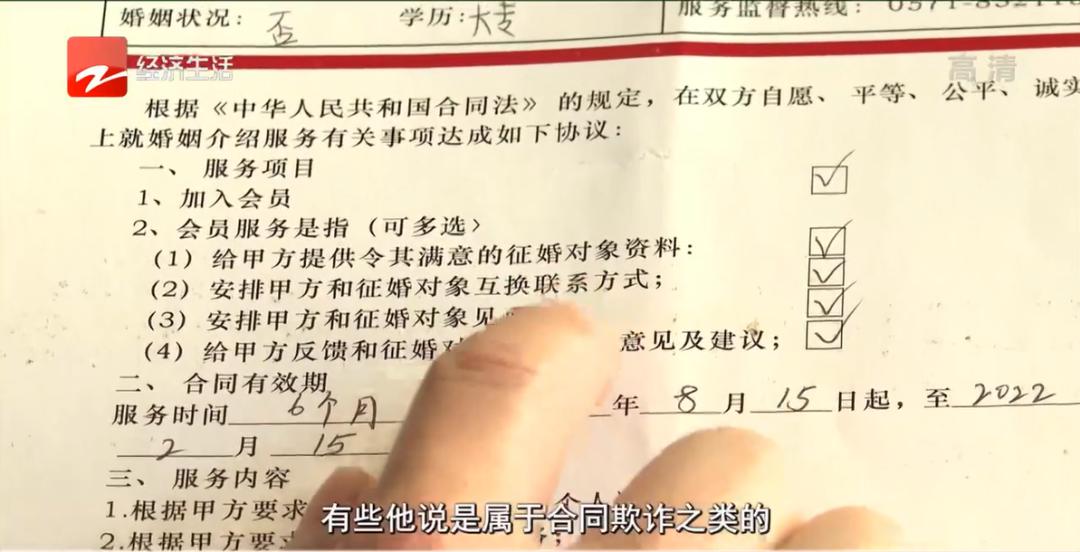 婚姻状况: 否 学历: 大专 服务监督热线: 0571-8521
经济生活 高清
根据《中华人民共和国合同法》的规定，在双方自愿、平等、公平、诚实
上就婚姻介绍服务有关事项达成如下协议：
一、服务项目
1、加入会员
2、会员服务是指（可多选>
(1) 给甲方提供令其满意的征婚对象资料：
(2) 安排甲方和征婚对象互换联系方式；
(3) 安排甲方和征婚对象见
(4) 给甲方反馈和征婚对 意见及建议；
二、合同有效期
服务时间 6个月 年 8 月 15 日起，至 2022
2 月 15
三、服务内容
1.根据甲方要求 个人
2.根据甲方要求
有些他说是属于合同欺诈之类的